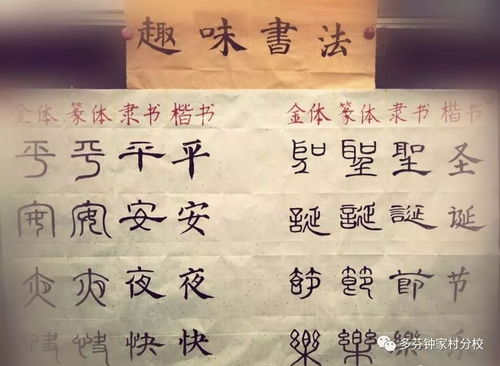 趣味書法
金体 篆体 隶书 楷书 金体 篆体 隶书 楷书
平 平 平 平 聖 聖 聖 圣
安 安 安 安 誕 誕 誕 诞
夜 夜 夜 夜 節 節 節 节
快 快 快 快 樂 樂 樂 乐
多芬钟家村分校